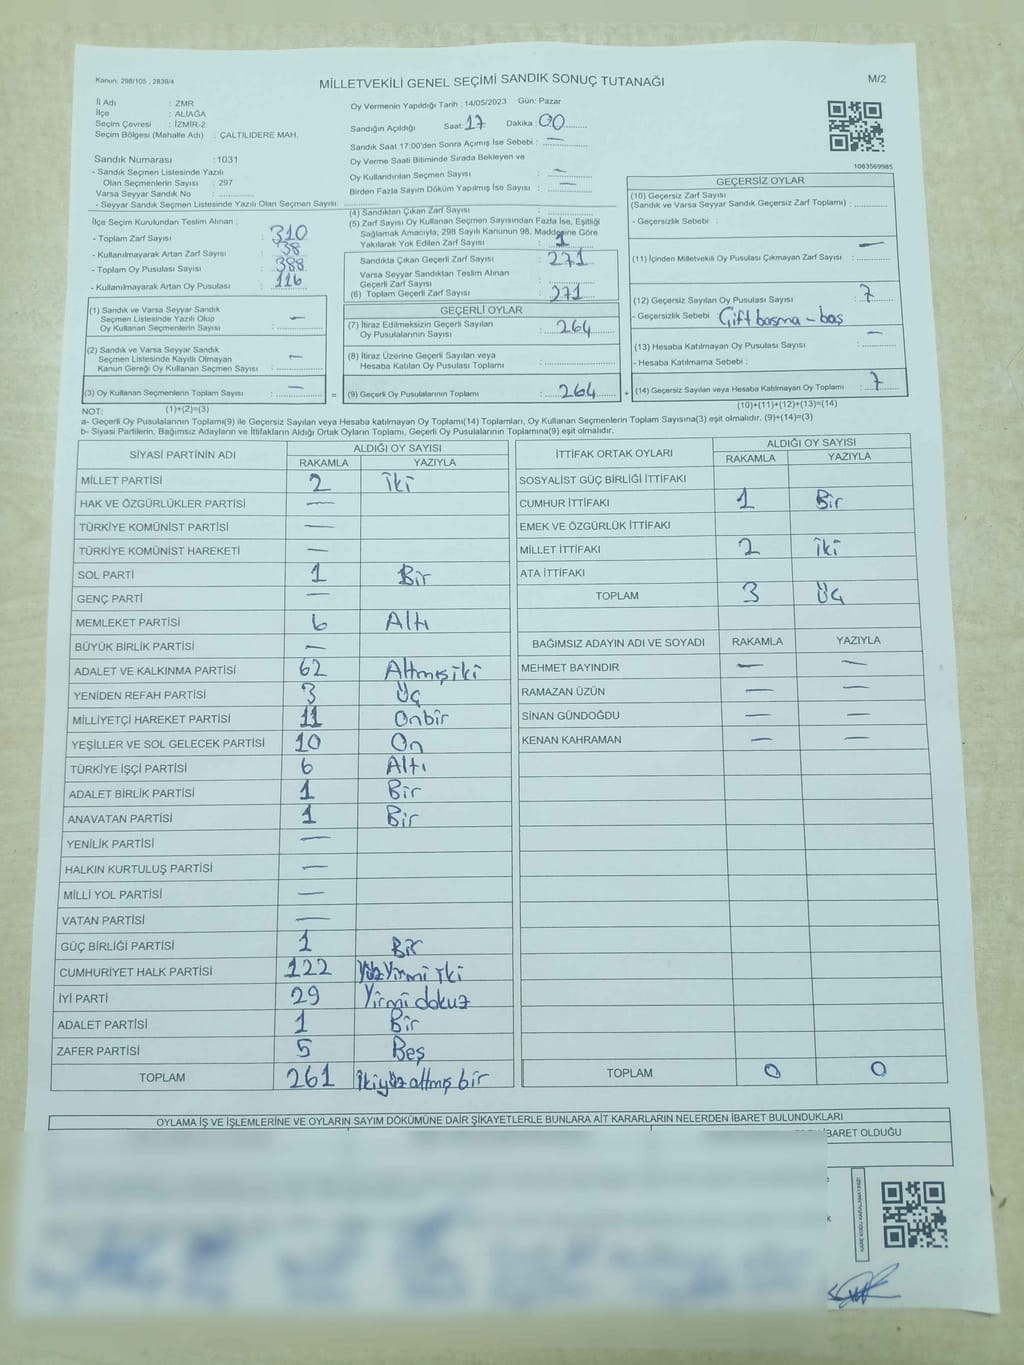 Kanun: 298/105 , 2839/4
MİLLETVEKİLİ GENEL SEÇİMİ SANDIK SONUÇ TUTANAĞI
M/2
İl Adı : ZMR
İlçe : ALİAĞA
Seçim Çevresi : İZMİR-2
Seçim Bölgesi (Mahalle Adı) : ÇALTILIDERE MAH.
Sandık Numarası : 1031
- Sandık Seçmen Listesinde Yazılı
Olan Seçmenlerin Sayısı : 297
Varsa Seyyar Sandık No :
- Seyyar Sandık Seçmen Listesinde Yazılı Olan Seçmen Sayısı:
Oy Vermenin Yapıldığı Tarih : 14/05/2023 Gün: Pazar
Sandığın Açıldığı Saat: 17 Dakika : 00
Sandık Saat 17:00'den Sonra Açımış İse Sebebi : —
Oy Verme Saati Bitiminde Sırada Bekleyen ve
Oy Kullandırılan Seçmen Sayısı : —
Birden Fazla Sayım Döküm Yapılmış İse Sayısı : —
1083569985
İlçe Seçim Kurulundan Teslim Alınan ;
- Toplam Zarf Sayısı : 310
- Kullanılmayarak Artan Zarf Sayısı : 38
- Toplam Oy Pusulası Sayısı : 388
- Kullanılmayarak Artan Oy Pusulası : 116
(1) Sandık ve Varsa Seyyar Sandık
Seçmen Listesinde Yazılı Olup
Oy Kullanan Seçmenlerin Sayısı : —
(2) Sandık ve Varsa Seyyar Sandık
Seçmen Listesinde Kayıtlı Olmayan
Kanun Gereği Oy Kullanan Seçmen Sayısı : —
(3) Oy Kullanan Seçmenlerin Toplam Sayısı : — =
(1)+(2)=(3)
(4) Sandıktan Çıkan Zarf Sayısı :
(5) Zarf Sayısı Oy Kullanan Seçmen Sayısından Fazla İse, Eşitliği
Sağlamak Amacıyla; 298 Sayılı Kanunun 98. Maddesine Göre
Yakılarak Yok Edilen Zarf Sayısı : 1
Sandıkta Çıkan Geçerli Zarf Sayısı : 271
Varsa Seyyar Sandıktan Teslim Alınan
Geçerli Zarf Sayısı :
(6) Toplam Geçerli Zarf Sayısı : 271
GEÇERLİ OYLAR
(7) İtiraz Edilmeksizin Geçerli Sayılan
Oy Pusulalarının Sayısı : 264
(8) İtiraz Üzerine Geçerli Sayılan veya
Hesaba Katılan Oy Pusulası Toplamı :
(9) Geçerli Oy Pusulalarının Toplamı : 264 +
GEÇERSİZ OYLAR
(10) Geçersiz Zarf Sayısı
(Sandık ve Varsa Seyyar Sandık Geçersiz Zarf Toplamı) :
- Geçersizlik Sebebi :
(11) İçinden Milletvekili Oy Pusulası Çıkmayan Zarf Sayısı : —
(12) Geçersiz Sayılan Oy Pusulası Sayısı : 7
- Geçersizlik Sebebi : Çift basma - boş
(13) Hesaba Katılmayan Oy Pusulası Sayısı : —
- Hesaba Katılmama Sebebi :
(14) Geçersiz Sayılan veya Hesaba Katılmayan Oy Toplamı : 7
(10)+(11)+(12)+(13)=(14)
NOT:
a- Geçerli Oy Pusulalarının Toplamı(9) ile Geçersiz Sayılan veya Hesaba katılmayan Oy Toplam(14) Toplamları, Oy Kullanan Seçmenlerin Toplam Sayısına(3) eşit olmalıdır. (9)+(14)=(3)
b- Siyasi Partilerin, Bağımsız Adayların ve İttifakların Aldığı Ortak Oyların Toplamı, Geçerli Oy Pusulalarının Toplamına(9) eşit olmalıdır.
SİYASİ PARTİNİN ADI ALDIĞI OY SAYISI
RAKAMLA YAZIYLA
MİLLET PARTİSİ 2 iki
HAK VE ÖZGÜRLÜKLER PARTİSİ —
TÜRKİYE KOMÜNİST PARTİSİ —
TÜRKİYE KOMÜNİST HAREKETİ —
SOL PARTİ 1 Bir
GENÇ PARTİ —
MEMLEKET PARTİSİ 6 Altı
BÜYÜK BİRLİK PARTİSİ —
ADALET VE KALKINMA PARTİSİ 62 Altmışiki
YENİDEN REFAH PARTİSİ 3 Üç
MİLLİYETÇİ HAREKET PARTİSİ 11 Onbir
YEŞİLLER VE SOL GELECEK PARTİSİ 10 On
TÜRKİYE İŞÇİ PARTİSİ 6 Altı
ADALET BİRLİK PARTİSİ 1 Bir
ANAVATAN PARTİSİ 1 Bir
YENİLİK PARTİSİ —
HALKIN KURTULUŞ PARTİSİ —
MİLLİ YOL PARTİSİ —
VATAN PARTİSİ —
GÜÇ BİRLİĞİ PARTİSİ 1 Bir
CUMHURİYET HALK PARTİSİ 122 Yüz Yirmi iki
İYİ PARTİ 29 Yirmi dokuz
ADALET PARTİSİ 1 Bir
ZAFER PARTİSİ 5 Beş
TOPLAM 261 İkiyüz altmış bir
İTTİFAK ORTAK OYLARI ALDIĞI OY SAYISI
RAKAMLA YAZIYLA
SOSYALİST GÜÇ BİRLİĞİ İTTİFAKI
CUMHUR İTTİFAKI 1 Bir
EMEK VE ÖZGÜRLÜK İTTİFAKI
MİLLET İTTİFAKI 2 iki
ATA İTTİFAKI
TOPLAM 3 Üç
BAĞIMSIZ ADAYIN ADI VE SOYADI RAKAMLA YAZIYLA
MEHMET BAYINDIR — —
RAMAZAN ÜZÜN — —
SİNAN GÜNDOĞDU — —
KENAN KAHRAMAN — —
TOPLAM 0 0
OYLAMA İŞ VE İŞLEMLERİNE VE OYLARIN SAYIM DÖKÜMÜNE DAİR ŞİKAYETLERLE BUNLARA AİT KARARLARIN NELERDEN İBARET BULUNDUKLARI
İBARET OLDUĞU
KARE KODU KARALAMAYINIZ!